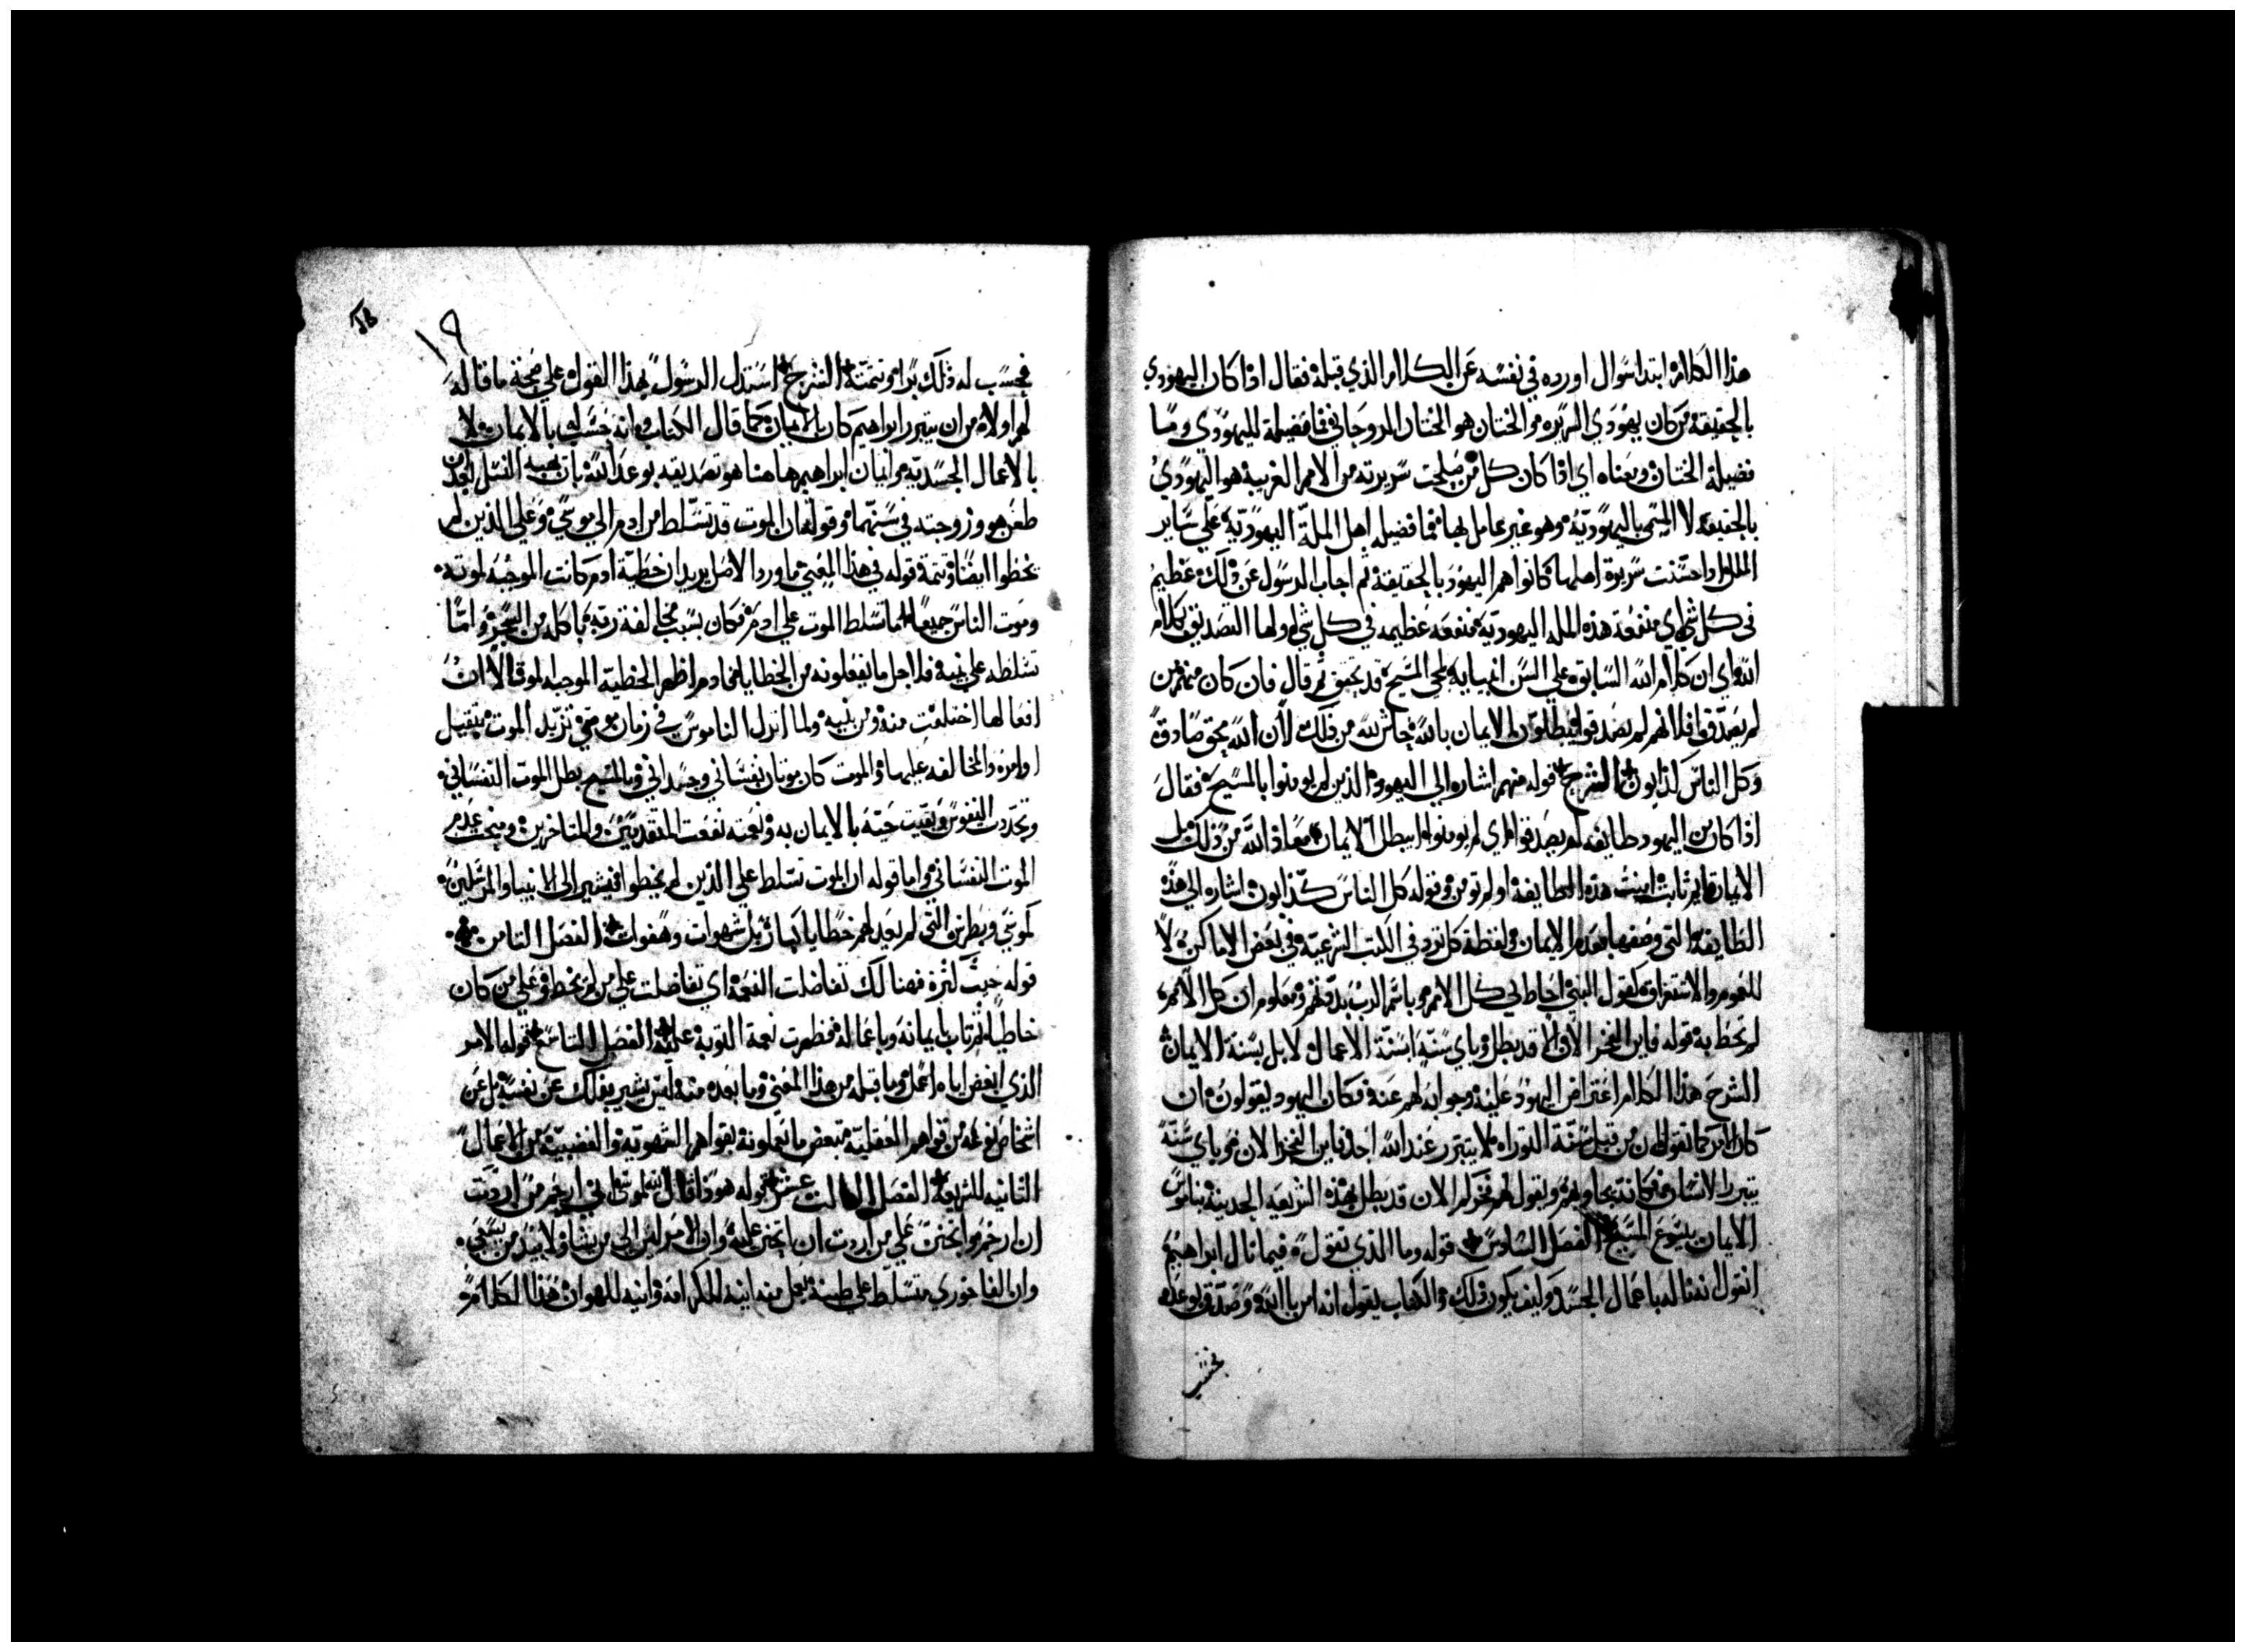 هذا الكلام ابتدا سوال اورده في نفسه عن الكلام الذي قبله فقال اذا كان اليهودي
بالحقيقة من كان يهودي السريره والختان هو الختان الروحاني فما فضيلة لليهودي وما
فضيلة الختان ومعناه اي اذا كان كل من صلحت سريرته من الامم الغريبة هو اليهودي
بالحقيقه لا المتمي باليهوديه وهو غير عامل بها فما فضيله اهل الملة اليهودية علي ساير
الملل واذا حسنت سريرة اهلها كانوا هم اليهود بالحقيقة ثم اجاب الرسول عن ذلك عظيم
في كل شي اي منفعة هذه المله اليهودية منفعه عظيمه في كل شي اولها التصديق بكلام
الله اي ان كلام الله السابق علي السن انبيايه لمجي المسيح قد تحقق ثم قال فان كان منهم من
لم يصدق افلانهم لم يصدقوا يبطلون الايمان بالله حاش لله من ذلك لان الله محق صادق
وكل الناس كذابون الشرح قوله منهم اشاره الي اليهود الذين لم يومنوا بالمسيح فقال
اذا كان من اليهود طايفه لم يصدقوا اي لم يومنوا ايبطل الايمان معاذ الله من ذلك بل
الايمان ثابت امنت هذه الطايفة او لم تومن وقوله كل الناس كذابون اشاره الي هذه
الطايفة التي وصفها بعدم الايمان ولفظة كل ترد في الكتب الشرعية في بعض الاماكن لا
للعموم والاستغراق كقول النبي احاط بي كل الامم وباسم الرب بددتهم ومعلوم ان كل الامم
لم تحط به قوله فاين الفخر الان الا قد بطل وباي سنة ابسنة الاعمال لا بل بسنة الايمان
الشرح هذا الكلام اعتراض اليهود عليه وجوابه لهم عنه فكان اليهود يقولون ان
كان الامر كما تقول ان من قبل سنة التوراه لا يتبرر عند الله احد فاين الفخر الان وباي سنة
يتبرر الانسان فكانه يجاوبهم ويقول لهم فخركم الان قد بطل بهذه الشريعه الجديدة بناموس
الايمان بيسوع المسيح الفصل السادس قوله وما الذي تقول فيما نال ابراهيم
انقول نعنا له باعمال الجسد وكيف يكون ذلك والكتاب يقول انه امن بالله وصدق بوعده
فحسب
١٩
فحسب له ذلك برا وتتمته الشرح استدل الرسول بهذا القول علي صحة ما قاله
لهم اولا من ان يتبرر ابراهيم كان بالايمان كما قال الكتاب وانه حسب بالايمان لا
بالاعمال الجسدية وايمان ابراهيم هاهنا هو تصديقه بوعد الله بان يهبه النسل بعد ان
طعن هو وزوجته في سنهما وقوله ان الموت قد تسلط من ادم الي موسي وعلي الذين لم
يخطوا ايضا وتتمة قوله في هذا المعني ما ورد الاصل يريد ان خطية ادم كانت الموجبه لموته
وموت الناس جميعا اما تسلط الموت علي ادم فكان بسبب مخالفة ربه بما كله من الشجره واما
تسلطه علي بنيه فلاجل ما يفعلونه من الخطايا فادم اظهر الخطية الموجبه لموته الا ان
افعالها اختلفت منه ومن بنيه ولما انزل الناموس في زمان موسي تزيد الموت بتقيل
اوامره والمخالفه عليها والموت كان موتان نفساني وجسداني وبالمسيح بطل الموت النفساني
وتجددت النفوس وبقيت حية بالايمان به ونعمته نفعت المتقدمين والمتاخرين ومنحت عدم
الموت النفساني واما قوله ان الموت تسلط علي الذين لم يخطوا فيشير الي الانبيا والمرسلين
كموسي وبطرس التي لم يعد لهم خطايا كبار بل شهوات وهفوات الفصل الثامن
قوله حيث كثرة فهنالك تفاضلت النعمة اي تفاضلت علي من لم يخط وعلي من كان
خاطيا ثم تاب بايمانه وباعماله فظهرت نعمة التوبة عليه الفصل التاسع قوله الامر
الذي ابغض اياه اعمل وما قبله من هذا المعني وما بعده منه ليس يشير بذلك عن نفسه بل عن
اشخاص نوعه من قواهم العقلية تبغض ما تعملونه بقواهم الشهوية والغضبية من الاعمال
الثانيه للشريعة الفصل الثالث عشر قوله هوذا قال الله لموسي اني ارحم من اردت
ان ارحم واتحنن علي من اردت ان اتحنن عليه وان الامر ليس الي من يشا ولا بيد من يسعي
وان الفاخوري متسلط علي طينة يعمل منه انية للكرامة وانيه للهوان هذا الكلام